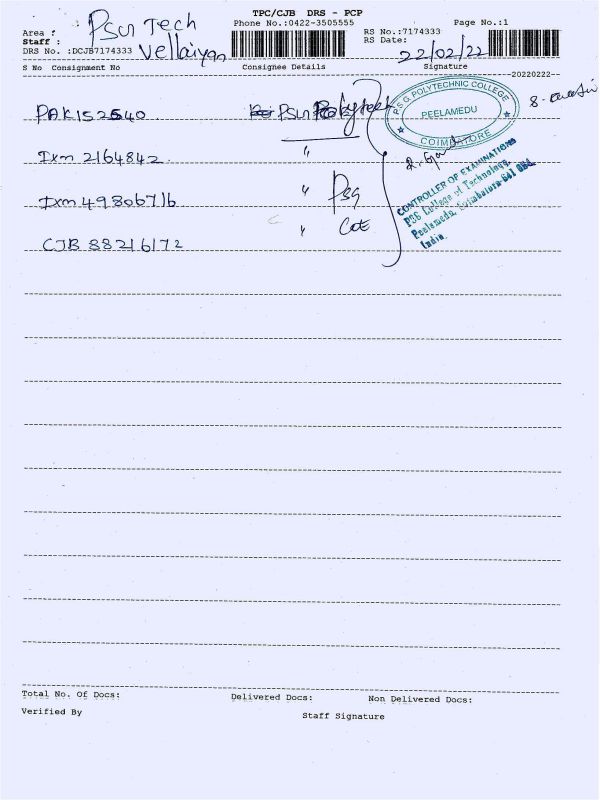 TPC/CJB DRS - PCP
Phone No.:0422-3505555
Page No.:1
Area :
PSG Tech
RS No.:7174333
Staff :
Vellaiyan
RS Date:
22/02/22
DRS No. :DCJB7174333
S No Consignment No
Consignee Details
Signature
20220222
PAK152540
PSG Polytech
P.S.G. POLYTECHNIC COLLEGE
PEELAMEDU
COIMBATORE
Ixm 2164842
"
CONTROLLER OF EXAMINATIONS
PSG College of Technology,
Peelamedu, Coimbatore-641 004.
India.
Ixm 49806716
" PSG
CJB 88216172
" COE
Total No. Of Docs:
Delivered Docs:
Non Delivered Docs:
Verified By
Staff Signature